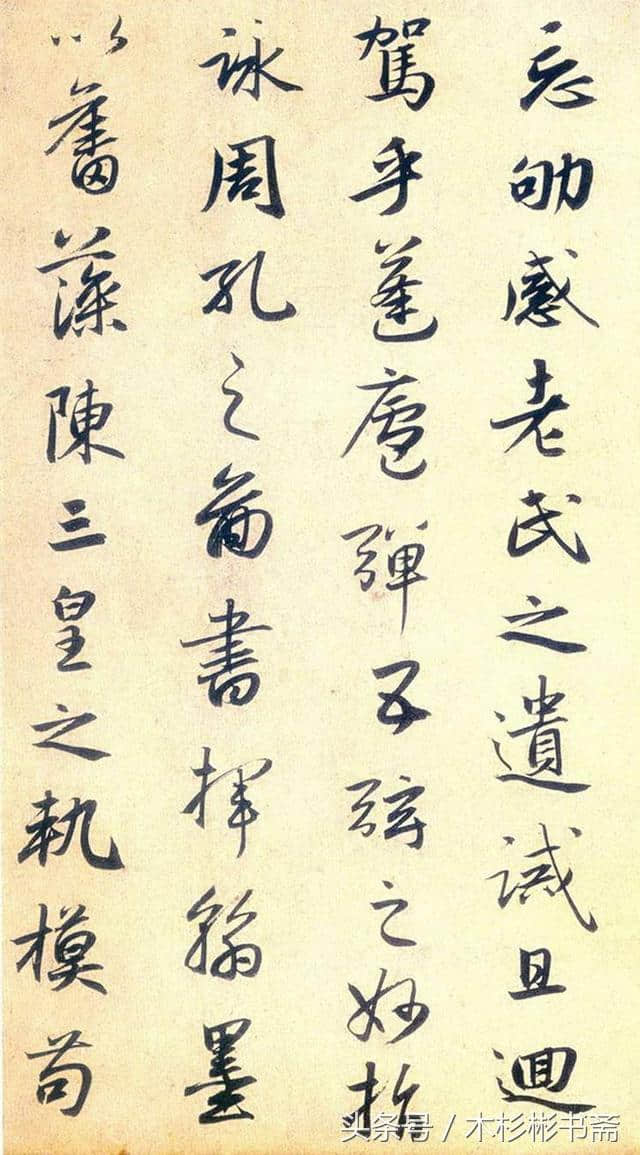 忘劬感老氏之遺誡且迴
駕乎蓬廬彈五弦之妙指
詠周孔之圖書揮翰墨
以奮藻陳三皇之軌模苟
头条号 / 木杉彬书斋